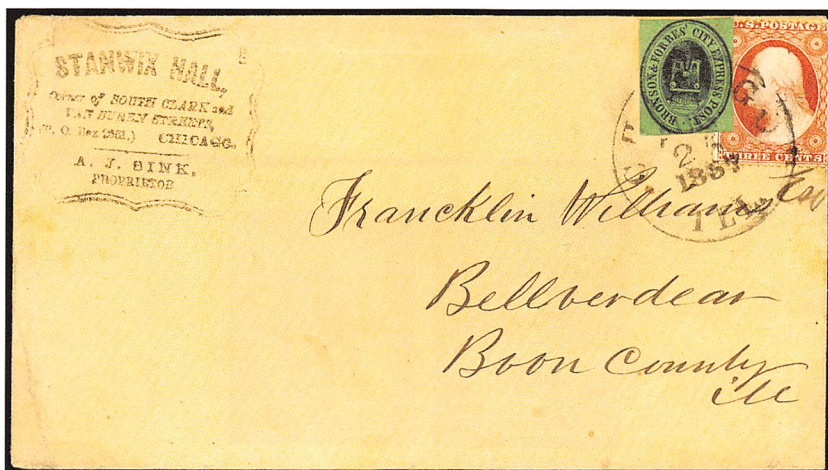 STANWIX HALL,
Corner of SOUTH CLARK and
VAN BUREN STREETS,
(P. O. Box) CHICAGO.
A. J. SINK,
PROPRIETOR
BRONSON & FORBES' CITY EXPRESS POST.
U.S. POSTAGE
THREE CENTS
CHICAGO
ILL
Francklin Williams Esq
Bellverdear
Boon County
ill